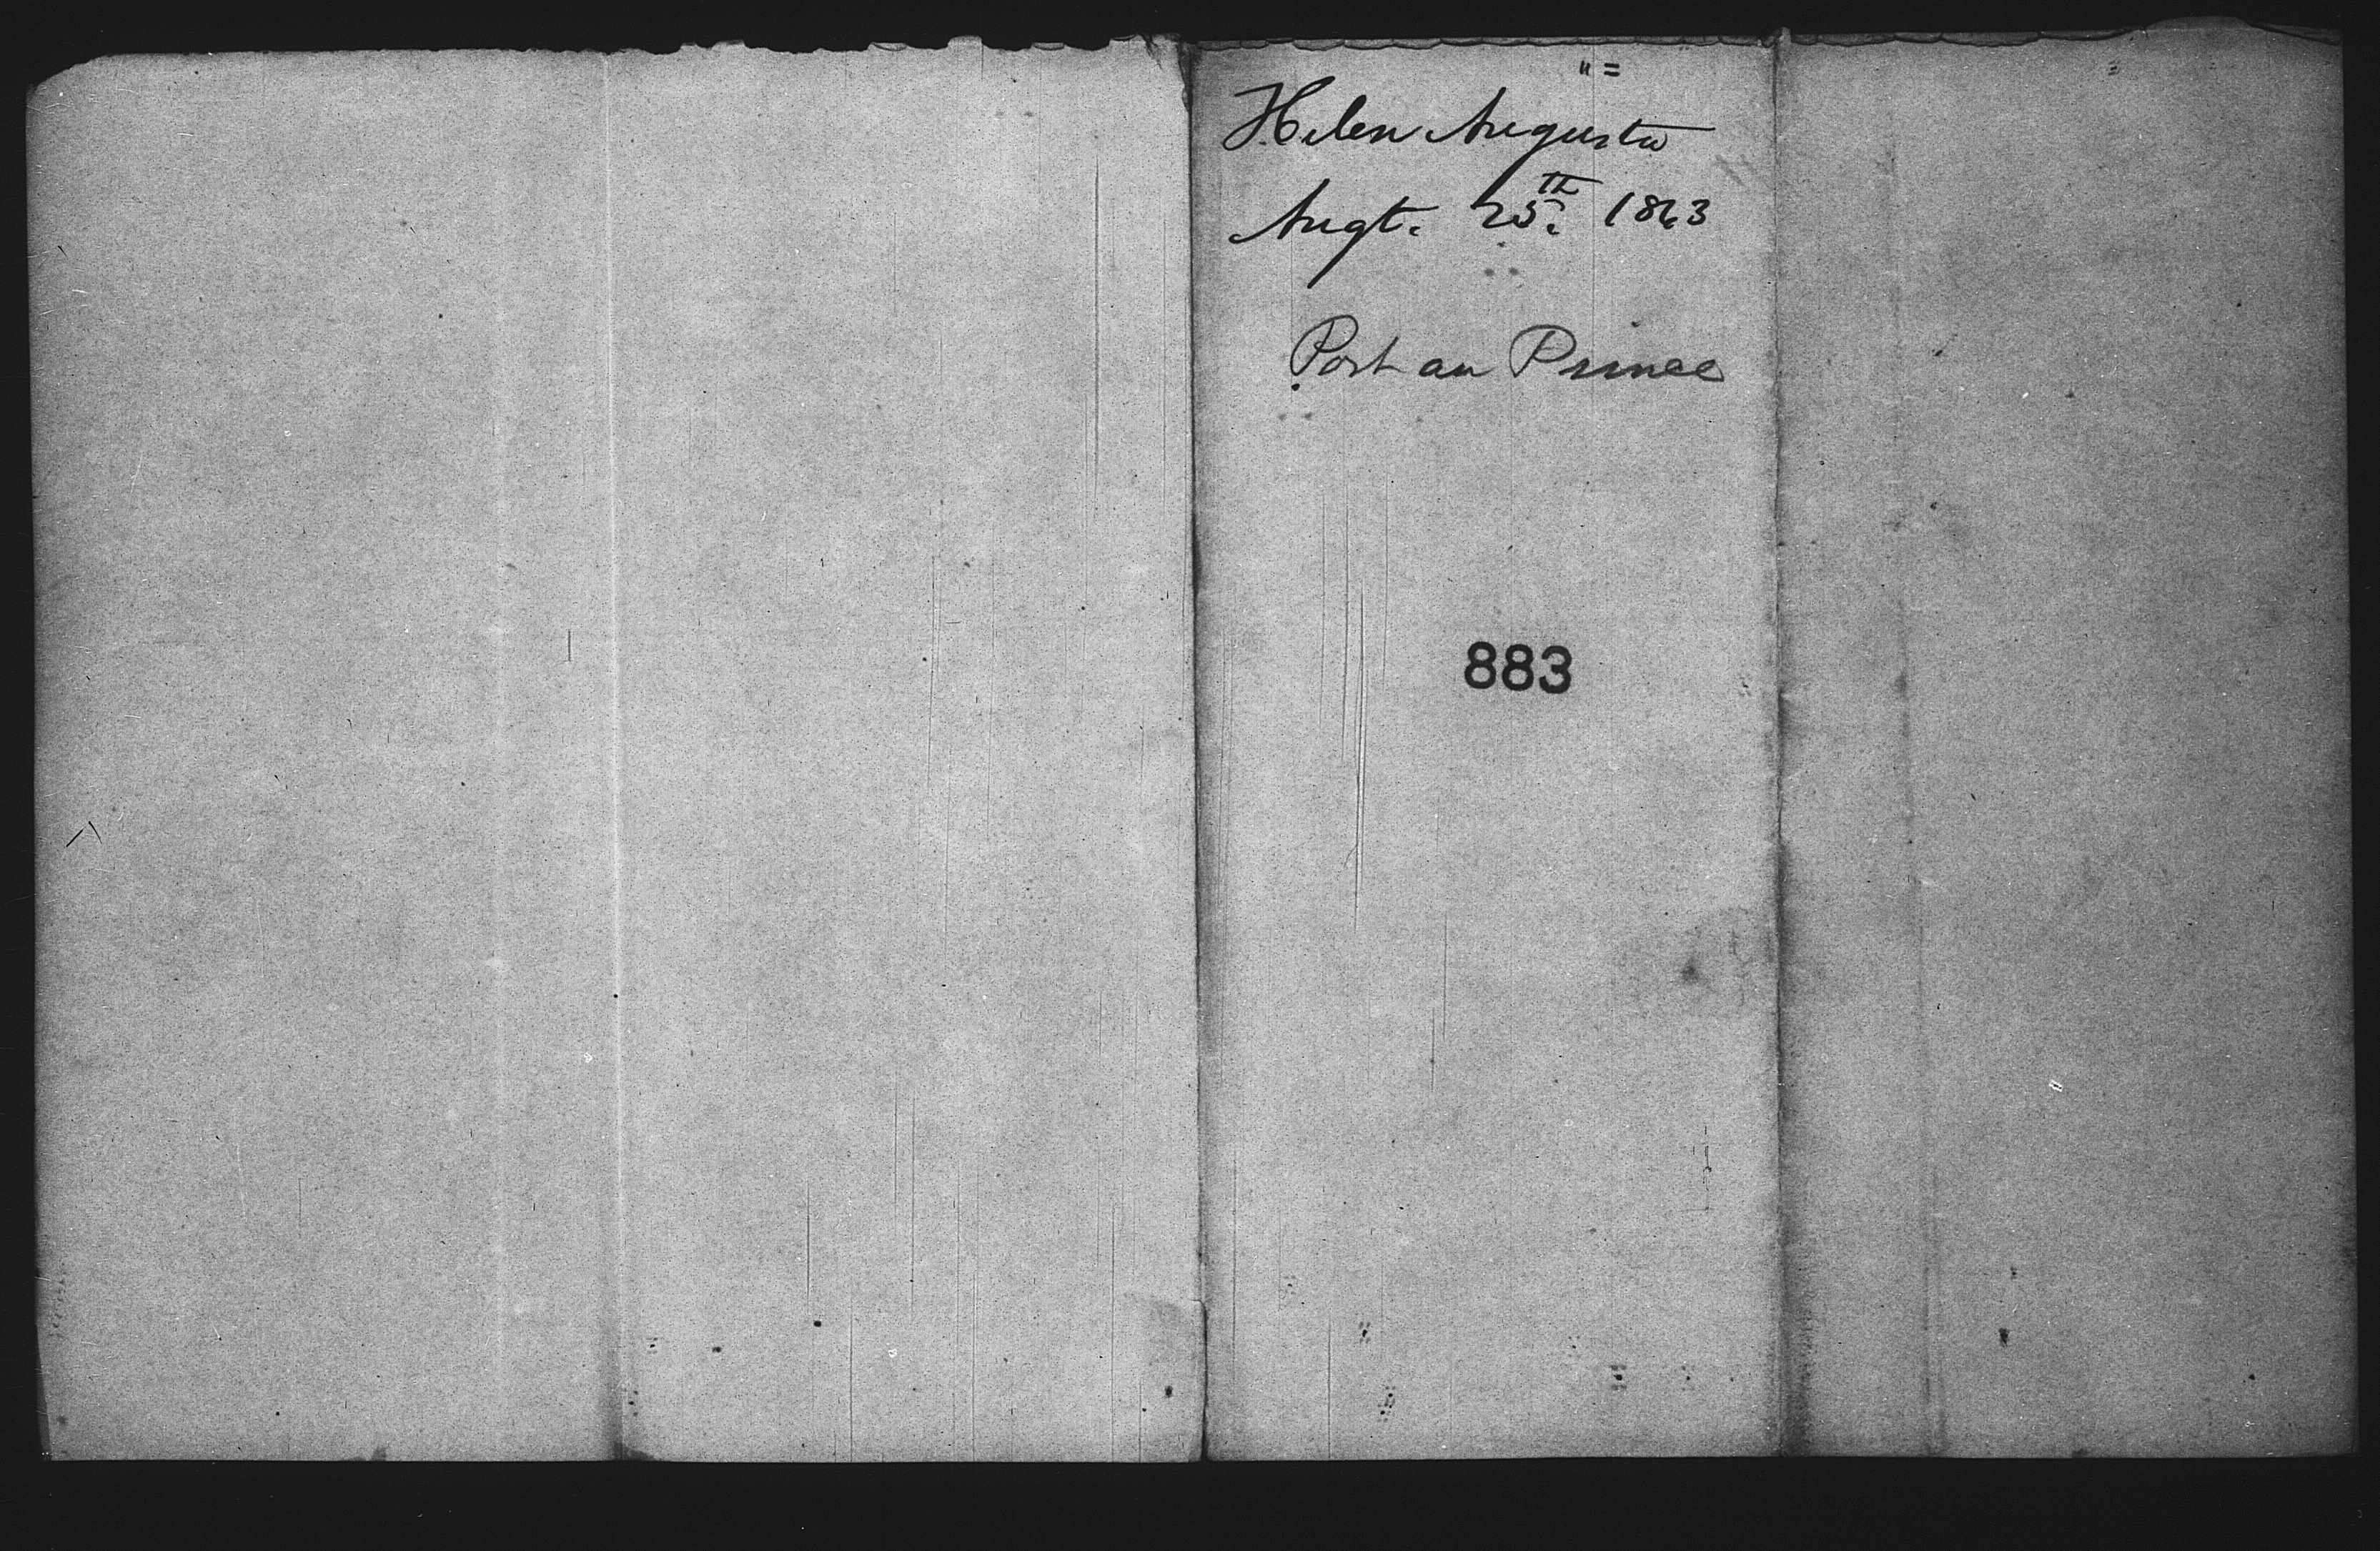 Helen Augusta
Augt. 25th. 1863
Port au Prince
883